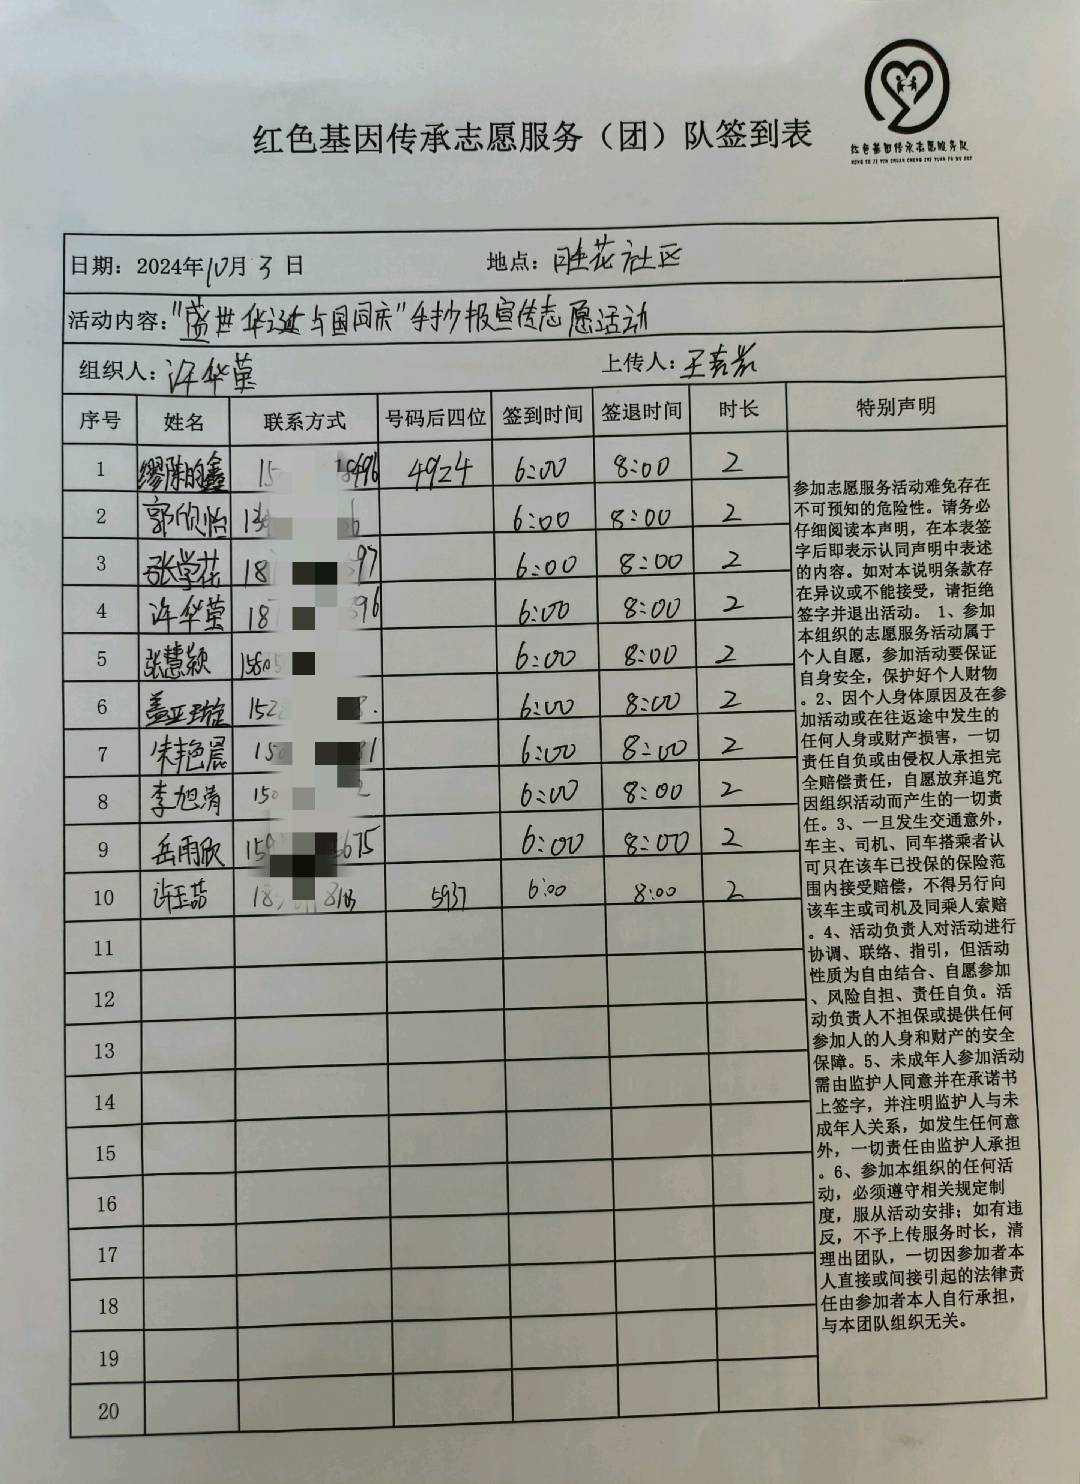 红色基因传承志愿服务队
HONG SE JI YIN CHUAN CHENG ZHI YUAN FU WU DUI
红色基因传承志愿服务（团）队签到表
日期：2024年10月3日 地点：旺花社区
活动内容："盛世华诞与国同庆"手抄报宣传志愿活动
组织人：许华莹 上传人：王
序号 姓名 联系方式 号码后四位 签到时间 签退时间 时长 特别声明
1 缪陈的鑫 15 4924 6:00 8:00 2
2 郭欣怡 6:00 8:00 2
3 张学花 18 97 6:00 8:00 2
4 许华莹 187 396 6:00 8:00 2
5 张慧颖 15805 6:00 8:00 2
6 盖亚璇 152 8. 6:00 8:00 2
7 朱艳晨 150 81 6:00 8:00 2
8 李旭清 150 2 6:00 8:00 2
9 岳雨欣 159 675 6:00 8:00 2
10 许玉喆 18 5937 6:00 8:00 2
11
12
13
14
15
16
17
18
19
20
参加志愿服务活动难免存在
不可预知的危险性。请务必
仔细阅读本声明，在本表签
字后即表示认同声明中表述
的内容。如对本说明条款存
在异议或不能接受，请拒绝
签字并退出活动。 1、参加
本组织的志愿服务活动属于
个人自愿，参加活动要保证
自身安全，保护好个人财物
。2、因个人身体原因及在参
加活动或在往返途中发生的
任何人身或财产损害，一切
责任自负或由侵权人承担完
全赔偿责任，自愿放弃追究
因组织活动而产生的一切责
任。3、一旦发生交通意外，
车主、司机、同车搭乘者认
可只在该车已投保的保险范
围内接受赔偿，不得另行向
该车主或司机及同乘人索赔
。4、活动负责人对活动进行
协调、联络、指引，但活动
性质为自由结合、自愿参加
、风险自担、责任自负。活
动负责人不担保或提供任何
参加人的人身和财产的安全
保障。5、未成年人参加活动
需由监护人同意并在承诺书
上签字，并注明监护人与未
成年人关系，如发生任何意
外，一切责任由监护人承担
。6、参加本组织的任何活
动，必须遵守相关规定制
度，服从活动安排；如有违
反，不予上传服务时长，清
理出团队，一切因参加者本
人直接或间接引起的法律责
任由参加者本人自行承担，
与本团队组织无关。